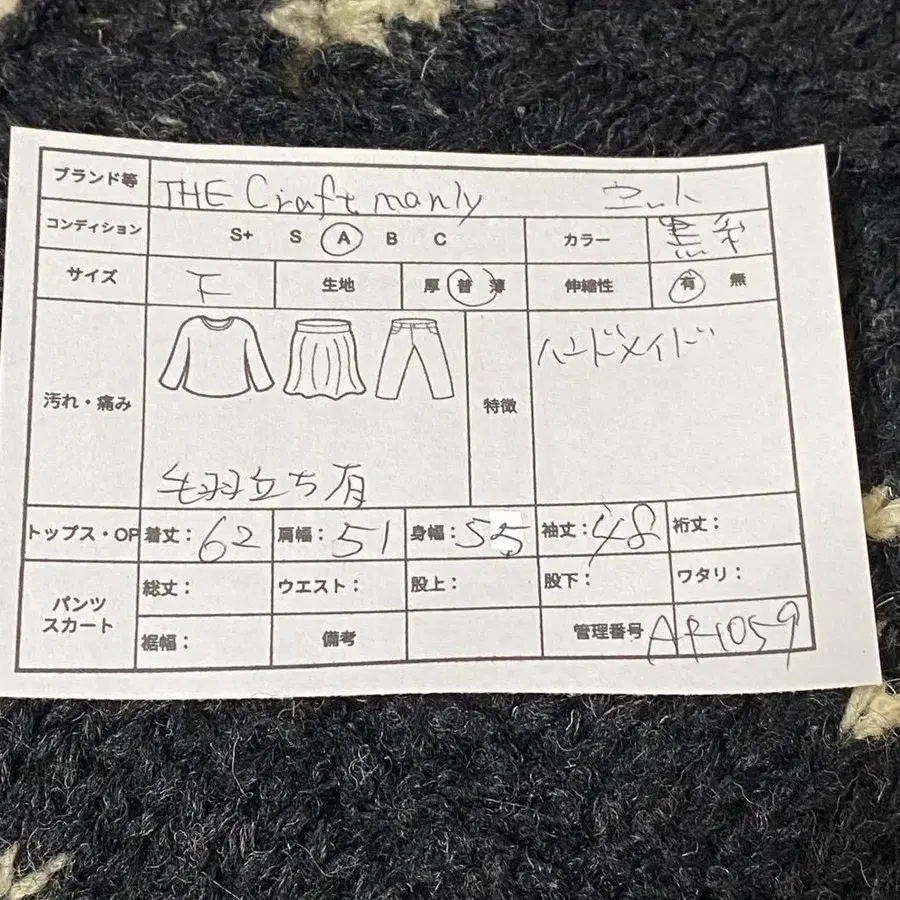 ブランド等 THE Craft manly ニット
コンディション S+ S A B C カラー 黒系
サイズ F 生地 厚 普 薄 伸縮性 有 無
汚れ・痛み 特徴 ハンドメイド
毛羽立ち有
トップス・OP 着丈: 62 肩幅: 51 身幅: 55 袖丈: 48 裄丈:
パンツ スカート 総丈: ウエスト: 股上: 股下: ワタリ:
裾幅: 備考 管理番号